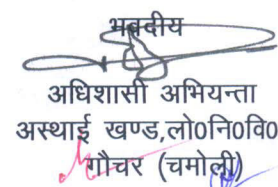 भवदीय
अधिशासी अभियन्ता
अस्थाई खण्ड,लो0नि0वि0
गौचर (चमोली)